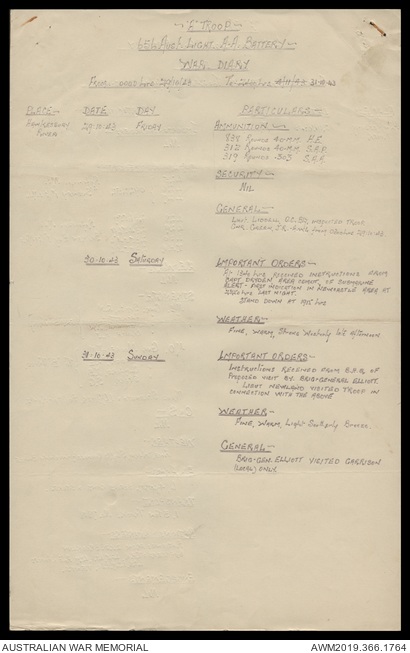 "E" TROOP
Aust. LIGHT A.A. BATTERY
WAR DIARY
From 0001 hrs 29/10/43 To 2400 hrs 31-10-43
PLACE DATE DAY PARTICULARS
29-10-43 FRIDAY AMMUNITION
838 Rounds 40 M.M. H.E.
312 Rounds 40 M.M. S.A.P.
319 Rounds .303 S.A.A.
SECURITY
NIL
GENERAL
Lieut
Gnr.
30-10-43 SATURDAY IMPORTANT ORDERS
At hrs RECEIVED INSTRUCTIONS FROM
CAPT. DRYDEN AREA OF SUBMARINE
ALERT - FIRST INDICATION IN NEWCASTLE AREA AT
hrs LAST NIGHT.
STAND DOWN AT 1915 hrs
WEATHER
FINE, WARM, Strong Westerly late afternoon
31-10-43 SUNDAY IMPORTANT ORDERS
INSTRUCTIONS RECEIVED FROM B.H.Q. OF
PROPOSED VISIT BY BRIG-GENERAL ELLIOTT.
LIEUT NEWLAND VISITED TROOP IN
CONNECTION WITH THE ABOVE
WEATHER
FINE, WARM, Light Southerly Breeze.
GENERAL
BRIG-GEN. ELLIOTT VISITED GARRISON
AUSTRALIAN WAR MEMORIAL AWM2019.366.1764